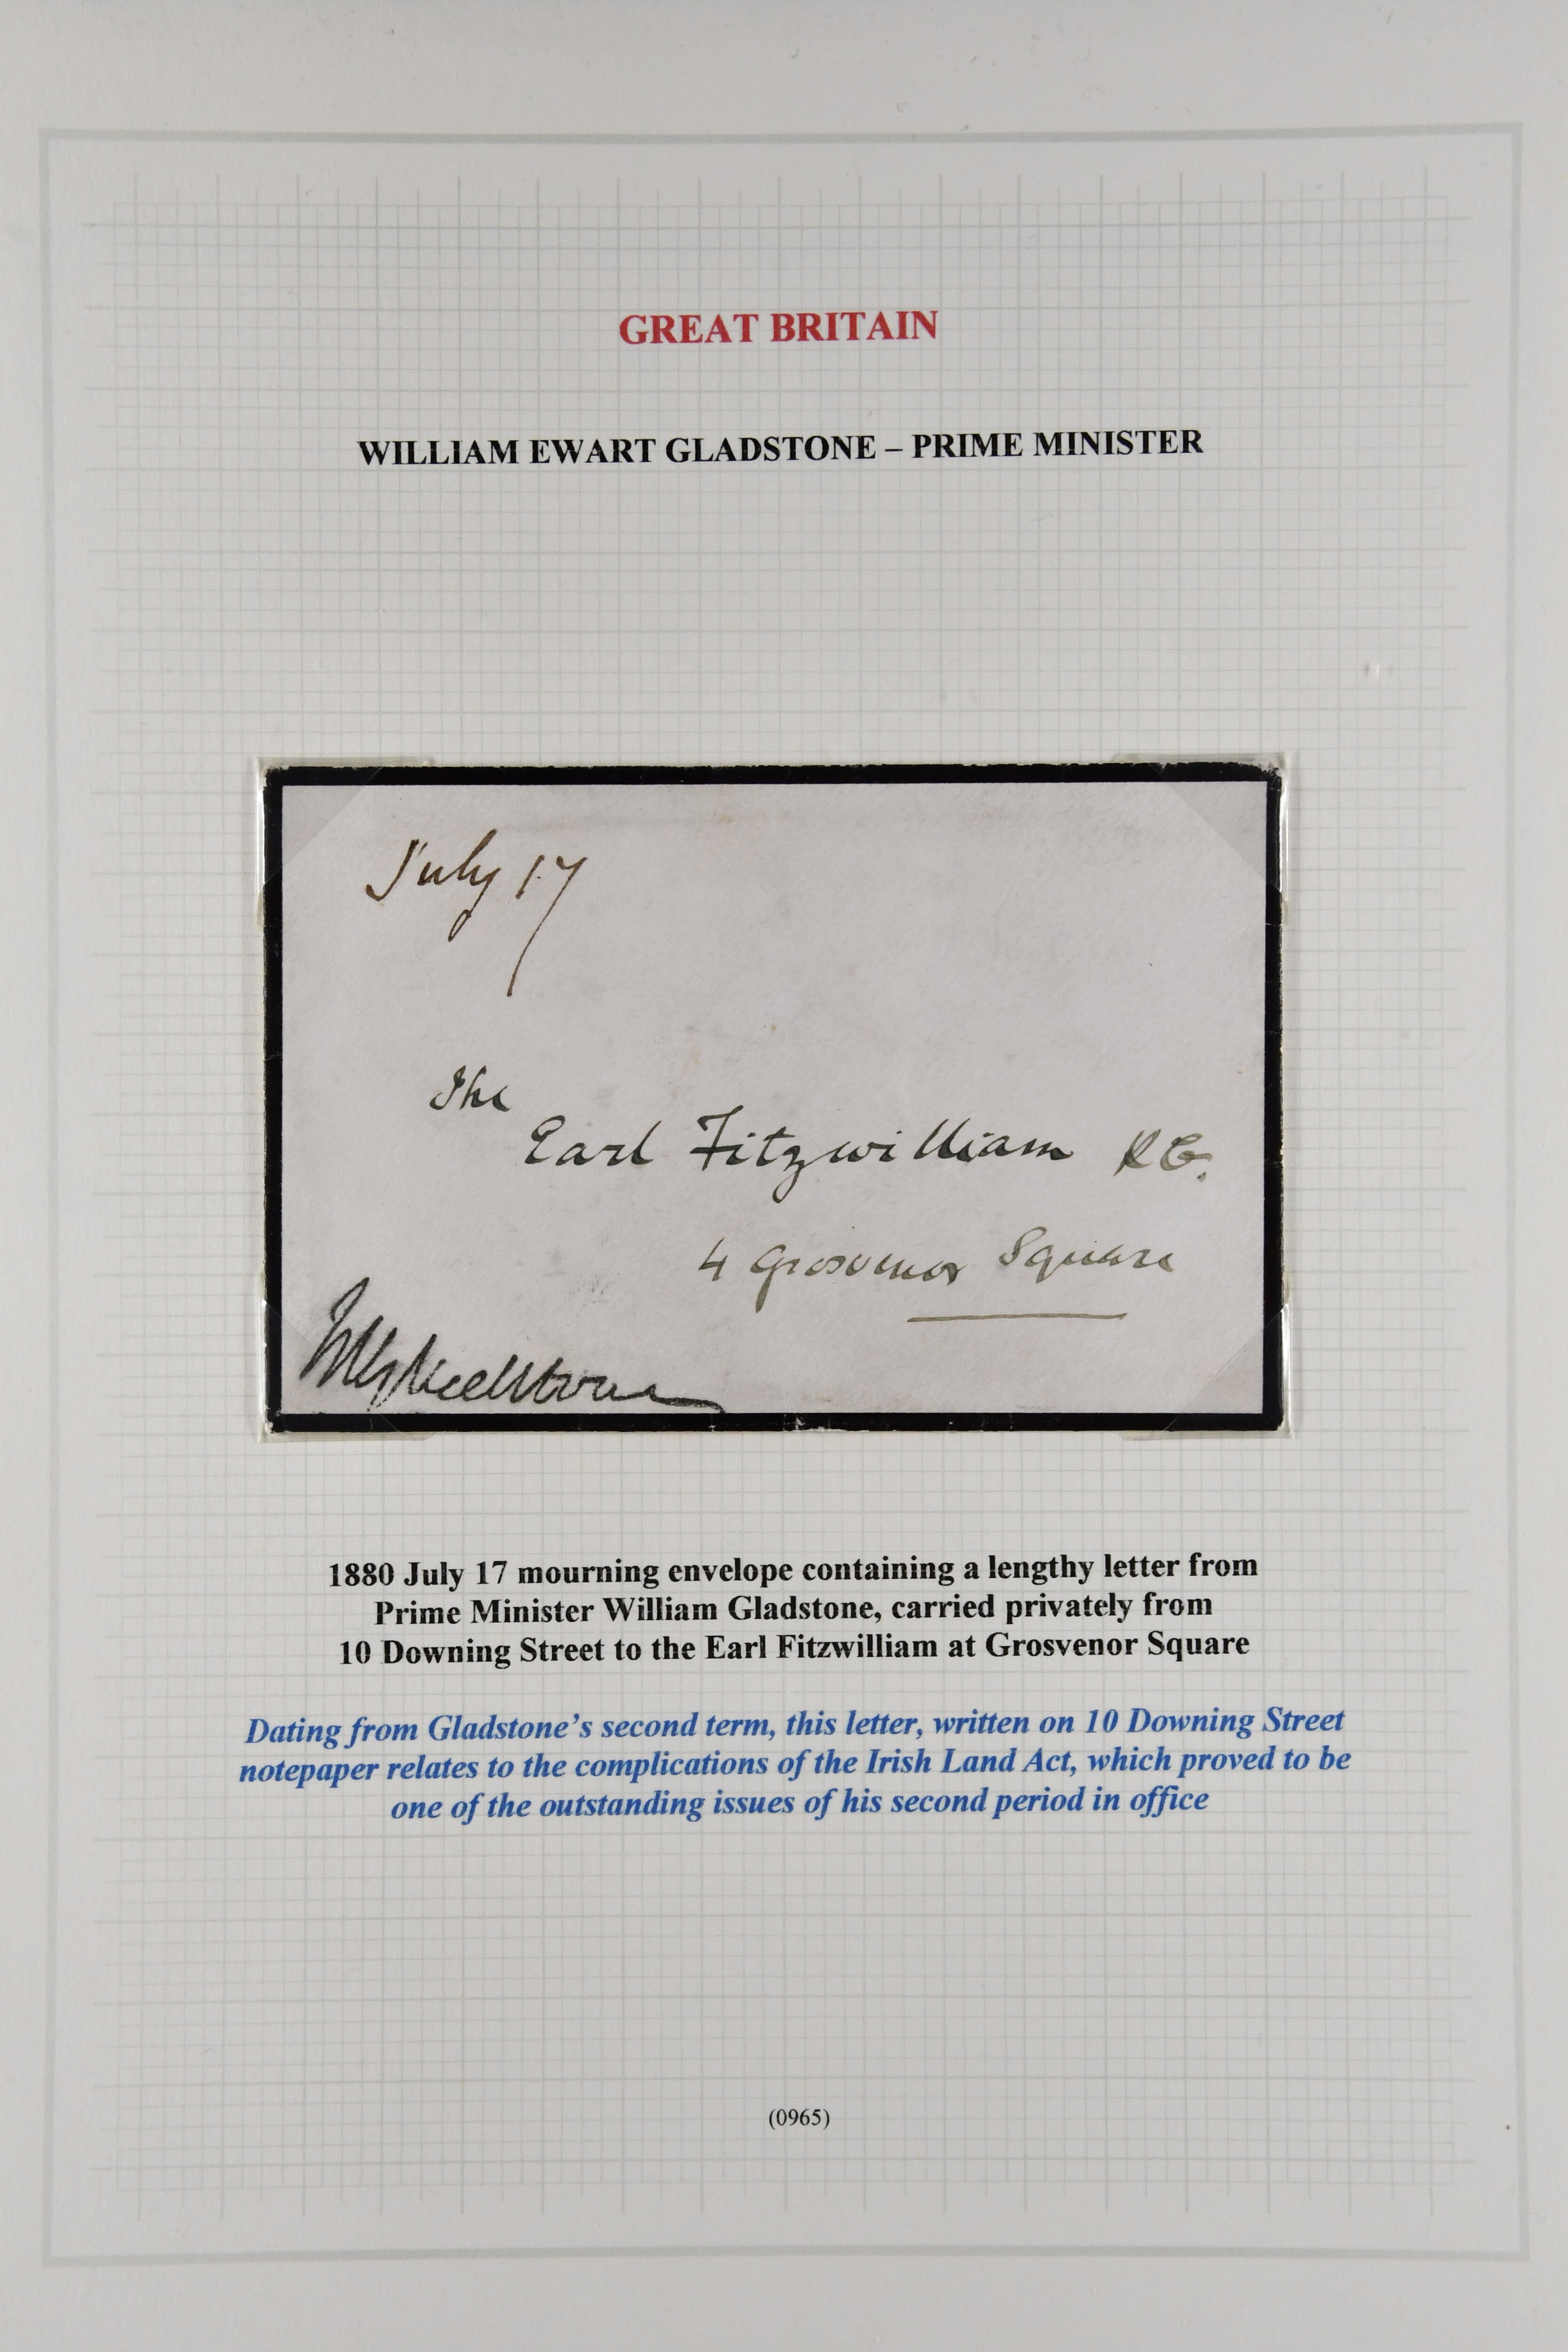 GREAT BRITAIN
WILLIAM EWART GLADSTONE – PRIME MINISTER
July 17
The
Earl Fitzwilliam KG.
4 Grosvenor Square
WEGladstone
1880 July 17 mourning envelope containing a lengthy letter from
Prime Minister William Gladstone, carried privately from
10 Downing Street to the Earl Fitzwilliam at Grosvenor Square
Dating from Gladstone’s second term, this letter, written on 10 Downing Street
notepaper relates to the complications of the Irish Land Act, which proved to be
one of the outstanding issues of his second period in office
(0965)